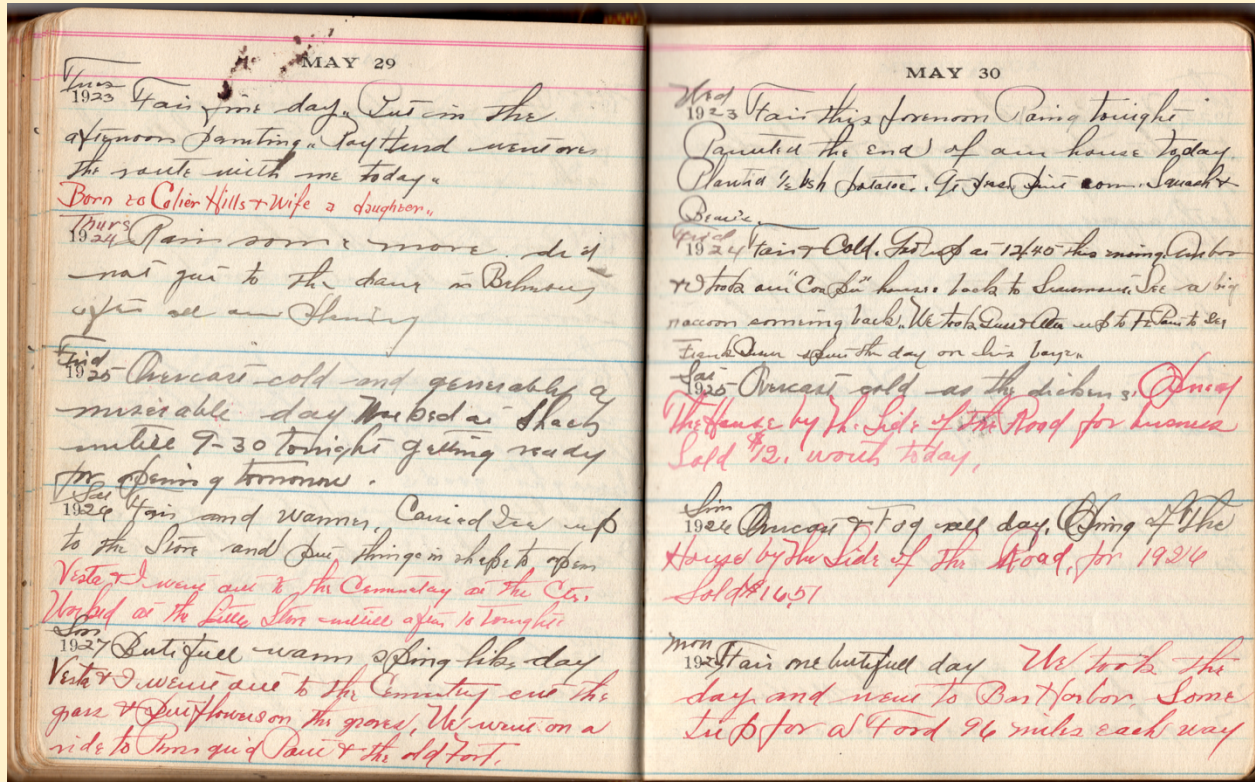 MAY 29
Tues
1923 Fair fine day. Put in the
afternoon painting. Ray Hurd went over
the route with me today.
Born to Colier Hills & Wife a daughter.
Thurs
1924 Rain some more did
not get to the dance in
after all our
Frid
1925 Overcast cold and generably a
miserable day Worked at Shack
untill 9-30 tonight getting ready
for opening tomorrow.
Sat
1926 Fair and warmer. Carried Ice up
to the Store and put things in shape to open
Vesta & I went out to the Cemmetary at the Ctr.
Worked at the little Store untill after 10 tonight
Sun
1927 Butifull warm spring like day
Vesta & I went out to the Cemmetry cut the
grass & put flowers on the graves. We went on a
ride to Pemiquid Point & the old Fort.
MAY 30
Wed
1923 Fair this forenoon Raing tonight
Painted the end of our house today.
Planted 1/2 bsh potatoes. peas corn. Squash &
Beans.
Frid
1924 Fair & Cold. Got up at 12/40 this morning.
& I took our house back to See a big
racoon comming back. We took up to Pt to see
Frank spent the day on his
Sat
1925 Overcast cold as the dickens. Opened
The House by The Side of the Road for business
Sold $12. worth today.
Sun
1926 Overcast & Fog all day. Opning of The
House by The Side of the Road, for 1926
Sold $16.51
Mon
1927 Fair one butifull day We took the
day and went to Bar Harbor. Some
trip for a Ford 96 miles each way